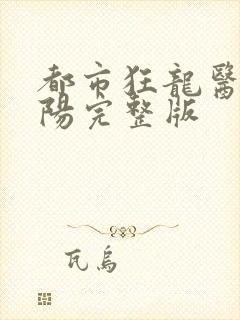 都市狂龍醫
陽完整版
瓦烏